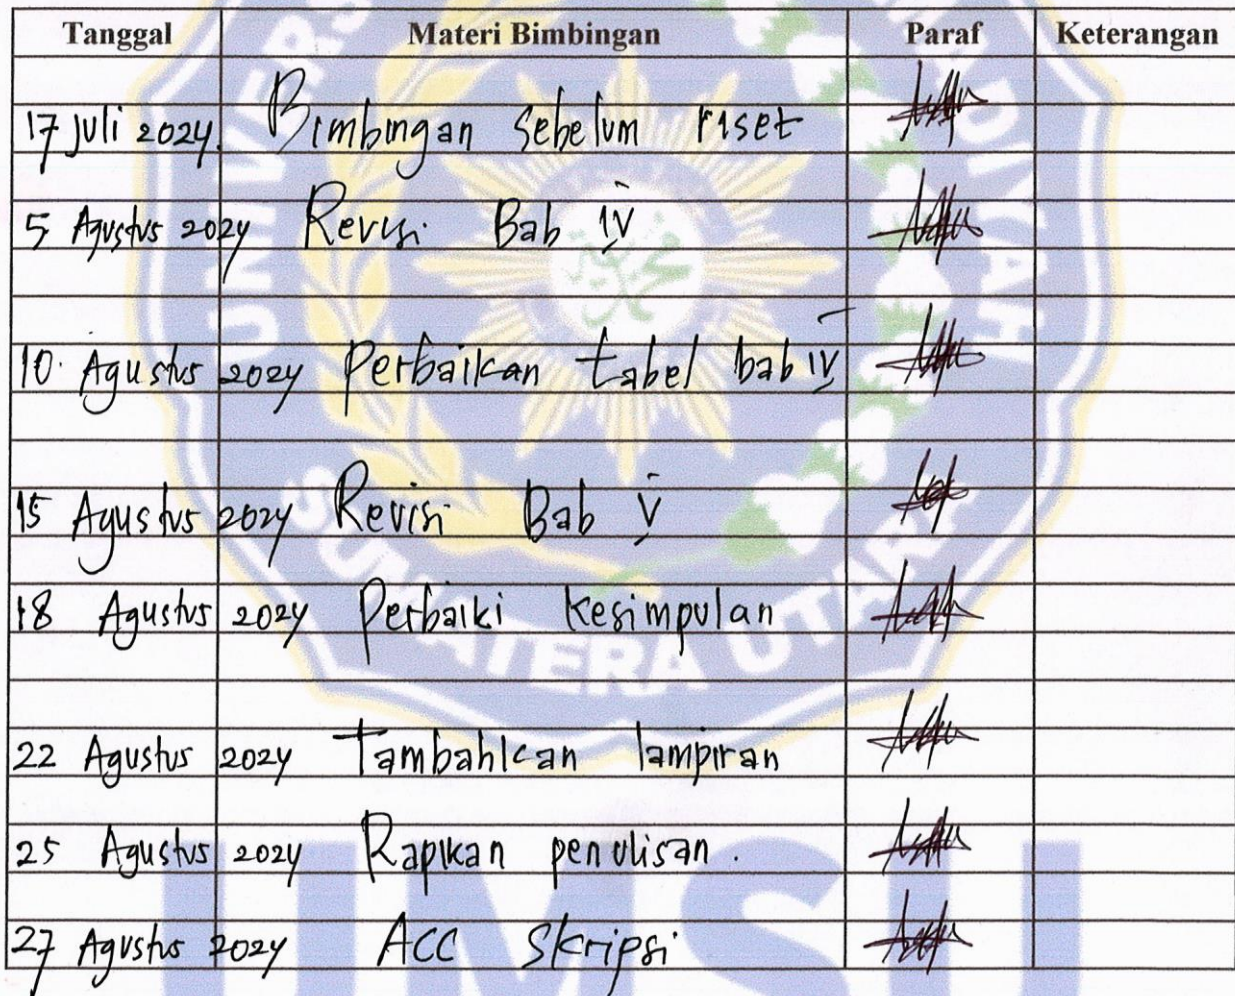 Tanggal Materi Bimbingan Paraf Keterangan
17 Juli 2024. Bimbingan sebelum riset
5 Agustus 2024 Revisi Bab IV
10. Agustus 2024 Perbaikan tabel bab IV
15 Agustus 2024 Revisi Bab V
18 Agustus 2024 Perbaiki kesimpulan
22 Agustus 2024 Tambahkan lampiran
25 Agustus 2024 Rapikan penulisan.
27 Agustus 2024 ACC Skripsi
SUMATERA UTARA
UMSU